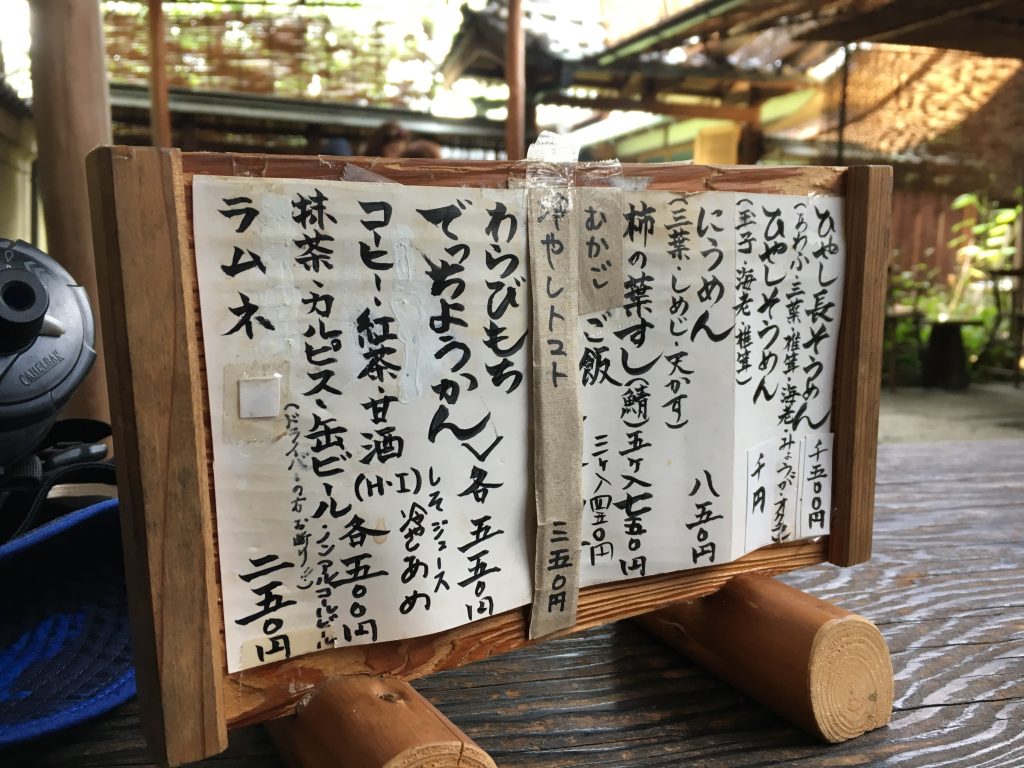 ひやし長そうめん 千五〇〇円
(あわふ・三葉・椎茸・海老・みょうが・オクラ)
ひやしそうめん 千円
(玉子 海老 椎茸)
にうめん 八五〇円
(三葉・しめじ・天かす)
柿の葉すし(鯖)五ヶ入 七五〇円
むかごご飯 三ヶ入 四五〇円
ひやしトマト 三五〇円
わらびもち
でっちようかん 各 五五〇円
しそジュース
コーヒー・紅茶・甘酒(H・I)冷しあめ
抹茶・カルピス・缶ビール・ノンアルコールビール 各 五〇〇円
(ドライバーの方お断り
ラムネ 二五〇円
CAMELBAK